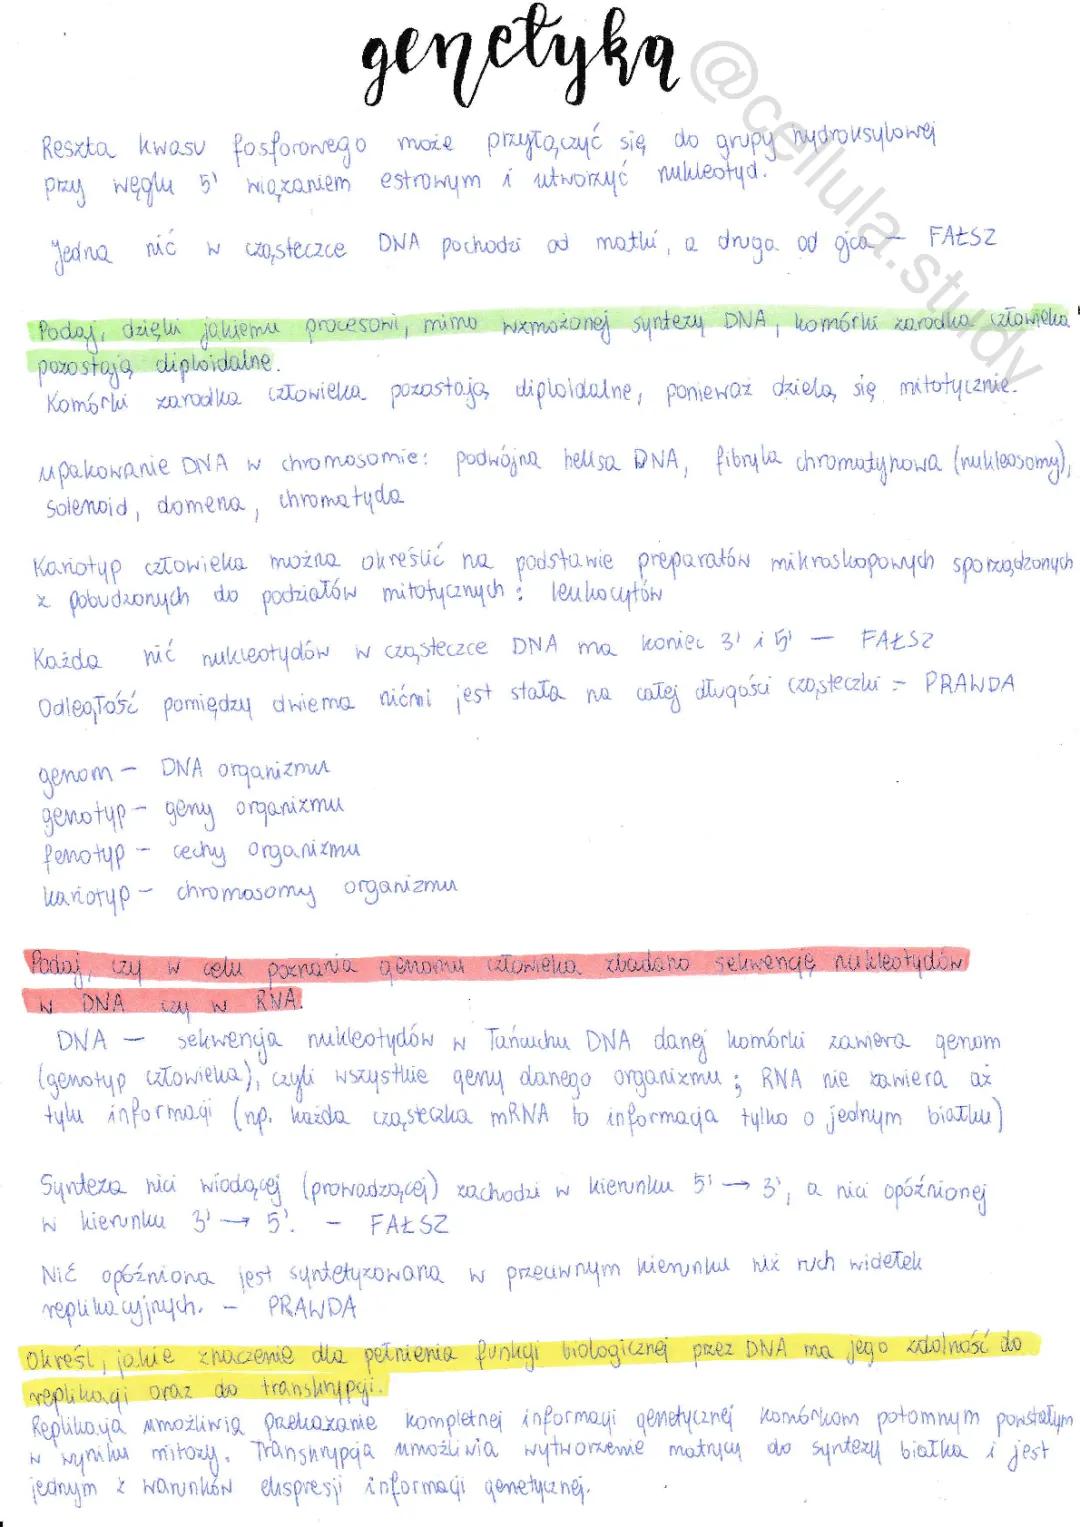 genetyka
@cellula.study
Reszta kwasu fosforowego może przyłączyć się do grupy hydroksylowej
przy węglu 5' wiązaniem estrowym i utworzyć nukleotyd.
Jedna nić w cząsteczce DNA pochodzi od matki, a druga od ojca – FAŁSZ
Podaj, dzięki jakiemu procesowi, mimo wzmożonej syntezy DNA, komórki zarodka człowieka
pozostają diploidalne.
Komórki zarodka człowieka pozostają diploidalne, ponieważ dzielą się mitotycznie.
upakowanie DNA w chromosomie: podwójna helisa DNA, fibryla chromatynowa (nukleosomy),
solenoid, domena, chromatyda
Kariotyp człowieka można określić na podstawie preparatów mikroskopowych sporządzonych
z pobudzonych do podziałów mitotycznych: leukocytów
Każda nić nukleotydów w cząsteczce DNA ma koniec 3' i 5' – FAŁSZ
Odległość pomiędzy dwiema nićmi jest stała na całej długości cząsteczki – PRAWDA
genom – DNA organizmu
genotyp – geny organizmu
fenotyp – cechy organizmu
kariotyp – chromosomy organizmu
Podaj, czy w celu poznania genomu człowieka zbadano sekwencję nukleotydów
w DNA czy w RNA.
DNA – sekwencja nukleotydów w łańcuchu DNA danej komórki zawiera genom
(genotyp człowieka), czyli wszystkie geny danego organizmu; RNA nie zawiera aż
tylu informacji (np. każda cząsteczka mRNA to informacja tylko o jednym białku)
Synteza nici wiodącej (prowadzącej) zachodzi w kierunku 5' → 3', a nici opóźnionej
w kierunku 3' → 5'. – FAŁSZ
Nić opóźniona jest syntetyzowana w przeciwnym kierunku niż ruch widełek
replikacyjnych. – PRAWDA
Określ, jakie znaczenie dla pełnienia funkcji biologicznej przez DNA ma jego zdolność do
replikacji oraz do transkrypcji.
Replikacja umożliwia przekazanie kompletnej informacji genetycznej komórkom potomnym powstałym
w wyniku mitozy. Transkrypcja umożliwia wytworzenie matrycy do syntezy białka i jest
jednym z warunków ekspresji informacji genetycznej.